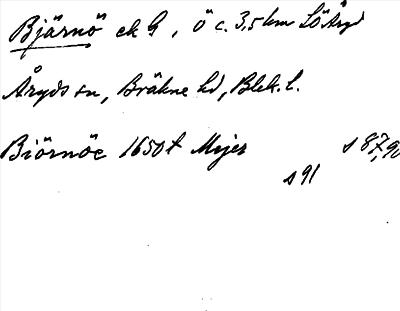 Bjärnö ek G, ö c. 3,5 km SÖ Åryd
Åryds sn, Bräkne hd, Blek. l.
Biörnöe 1650t Mejer s 87, 90
s 91